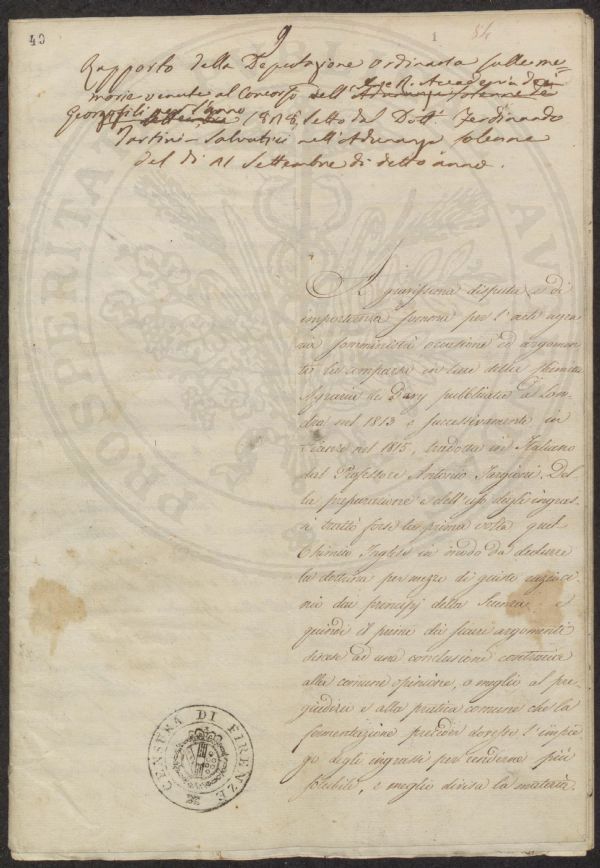 49
9
1
54
Rapporto della Deputazione ordinaria sulle me=
morie venute al Concorso dell' I. e R. Accademia dei
Georgofili per l'anno
1818, letto dal Dott. Ferdinando
Tartini-Salvatici nell'Adunanza solenne
del dì 21 Settembre di detto anno.
A gravissima disputa e di
importanza somma per l'arte agra
ria somministrò occasione ed argomen
to la comparsa in luce della Chimica
Agraria di Davy pubblicata a Lon
dra nel 1813 e successivamente in
Firenze nel 1815, tradotta in Italiano
dal Professore Antonio Targioni. Del
la preparazione e dell'uso degli ingras
si trattò forse la prima volta quel
Chimico Inglese in modo da dedurre
la dottrina per mezzo di giuste
dai principj della Scienza, e
quindi il primo dai suoi argomenti
discese ad una conclusione contraria
alla comune opinione, o meglio al pre
giudizio e alla pratica comune che la
fermentazione preceder dovesse l'impie
go degli ingrassi per renderne più
solubile, e meglio divisa la materia.
CENSURA DI FIRENZE
PROSPERITA